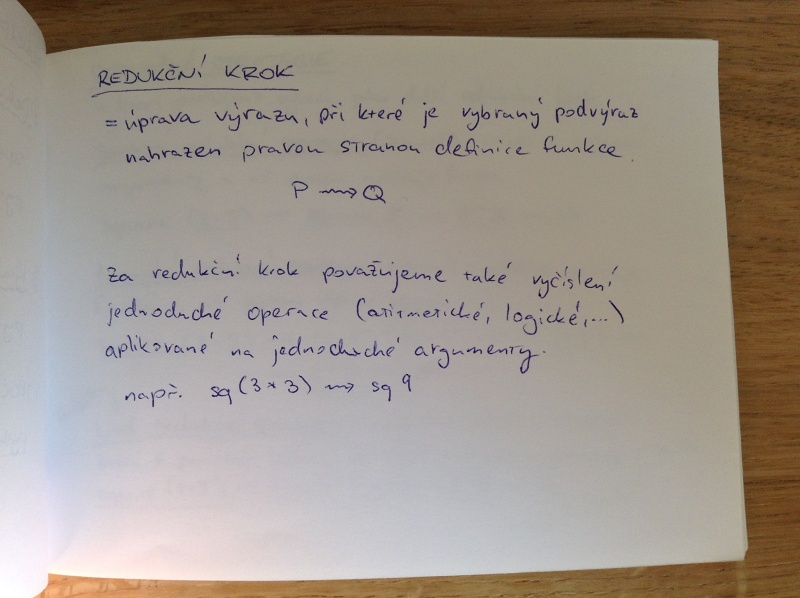 REDUKČNÍ KROK
= úprava výrazu, při které je vybraný podvýraz
nahrazen pravou stranou definice funkce.
P ⇝ Q
Za redukční krok považujeme také vyčíslení
jednoduché operace (aritmetické, logické,...)
aplikované na jednoduché argumenty.
např. sq (3 * 3) ⇝ sq 9